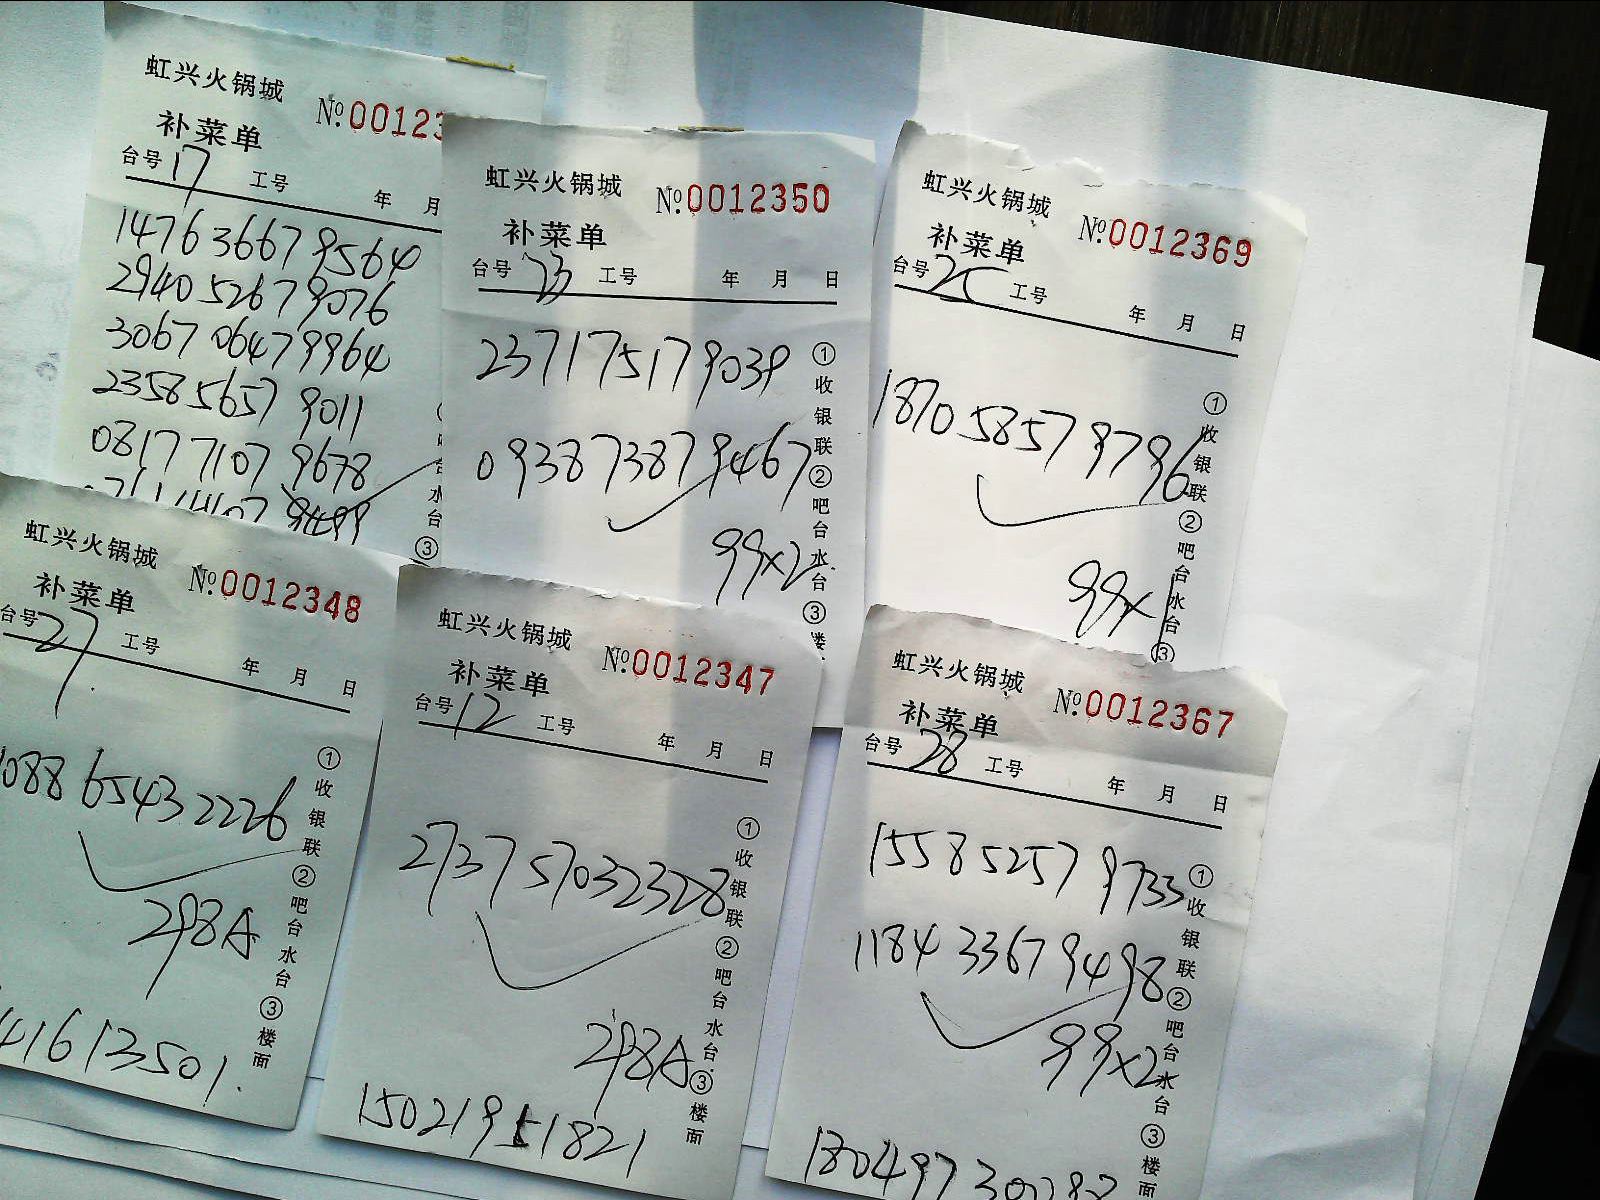 虹兴火锅城 №00123
补菜单
台号 17 工号 年 月
1476 3667 9564
2940 5267 9076
3067 0647 9964
2358 5657 9011
0817 7107 9678
水
台
③
虹兴火锅城 №0012350
补菜单
台号 23 工号 年 月 日
2371 7517 9039
0938 7387 9467
99×2
①收银联②吧台水台③楼
虹兴火锅城 №0012369
补菜单
台号 25 工号 年 月 日
1870 5857 9796
99×1
①收银联②吧台水台③
虹兴火锅城 №0012348
补菜单
台号 27 工号 年 月 日
088 6543 2226
298A
41613501.
①收银联②吧台水台③楼面
虹兴火锅城 №0012347
补菜单
台号 12 工号 年 月 日
2737 5703 2328
298A
15021951821
①收银联②吧台水台③楼面
虹兴火锅城 №0012367
补菜单
台号 28 工号 年 月 日
1558 5257 9733
1184 3367 9498
99×2
①收银联②吧台水台③楼面